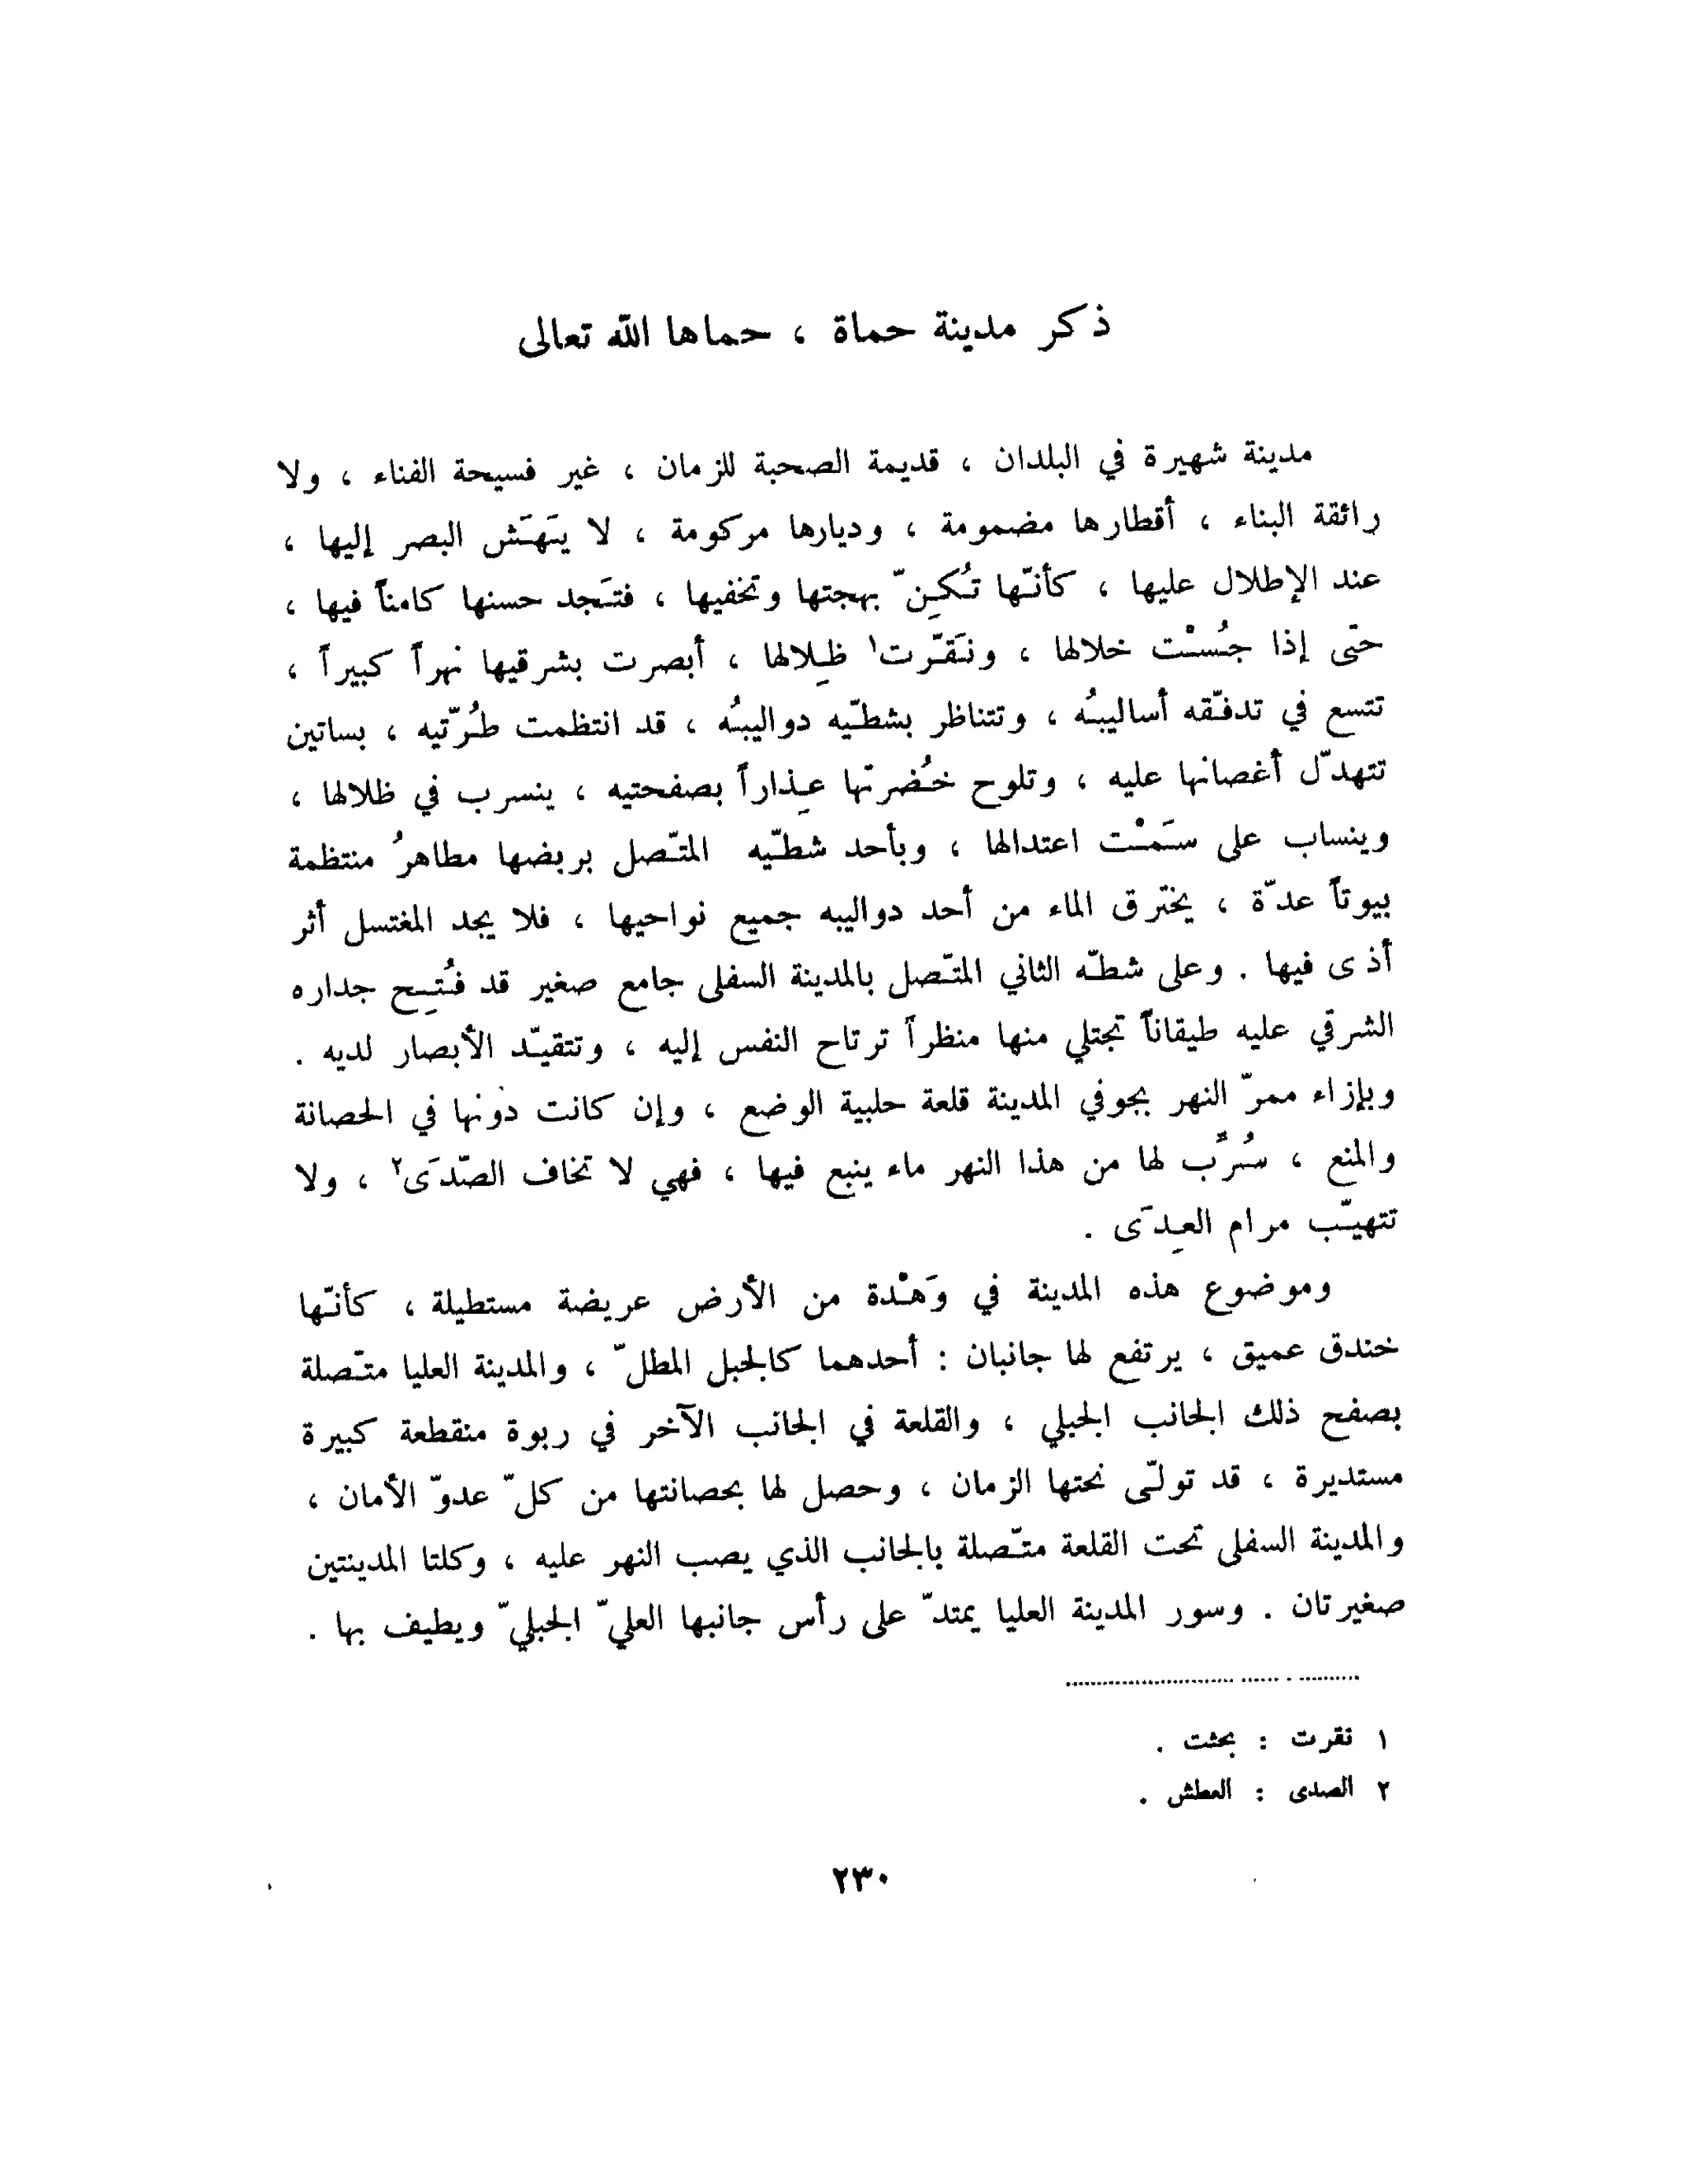 ذكر مدينة حماة ، حماها الله تعالى
مدينة شهيرة في البلدان ، قديمة الصحبة للزمان ، غير فسيحة الفناء ، ولا
رائقة البناء ، أقطارها مضمومة ، وديارها مركومة ، لا يَهَش البصر إليها ،
عند الإطلال عليها ، كأنّها تُكِنّ بهجتها وتخفيها ، فتَجد حسنها كامناً فيها ،
حتى إذا جُسْت خلالها ، ونَقّرت١ ظِلالها ، أبصرت بشرقيها نهراً كبيراً ،
تتسع في تدفّقه أساليبُه ، وتتناظر بشطّيه دواليبُه ، قد انتظمت طُرّتيه ، بساتين
تتهدّل أغصانها عليه ، وتلوح خُضرتها عِذاراً بصفحتيه ، ينسرب في ظلالها ،
وينساب على سَمْت اعتدالها ، وبأحد شطّيه المتّصل بربضها مطاهرُ منتظمة
بيوتاً عدّة ، يخترق الماء من أحد دواليبه جميع نواحيها ، فلا يجد المغتسل أثر
أذى فيها . وعلى شطّه الثاني المتّصل بالمدينة السفلى جامع صغير قد فُتِح جداره
الشرقي عليه طيقاناً تجتلي منها منظراً ترتاح النفس إليه ، وتتقيّد الأبصار لديه .
وبإزاء ممرّ النهر بجوفي المدينة قلعة حلبية الوضع ، وإن كانت دونها في الحصانة
والمنع ، سُرِّب لها من هذا النهر ماء ينبع فيها ، فهي لا تخاف الصّدَى٢ ، ولا
تتهيّب مرام العِدَى .
وموضوع هذه المدينة في وَهْدة من الأرض عريضة مستطيلة ، كأنّها
خندق عميق ، يرتفع لها جانبان : أحدهما كالجبل المطلّ ، والمدينة العليا متّصلة
بصفح ذلك الجانب الجبلي ، والقلعة في الجانب الآخر في ربوة منقطعة كبيرة
مستديرة ، قد تولّى نحتها الزمان ، وحصل لها بحصانتها من كلّ عدوّ الأمان ،
والمدينة السفلى تحت القلعة متّصلة بالجانب الذي يصب النهر عليه ، وكلتا المدينتين
صغيرتان . وسور المدينة العليا يمتدّ على رأس جانبها العليّ الجبليّ ويطيف بها .
١ نقرت : بحثت .
٢ الصدى : العطش .
٢٣٠